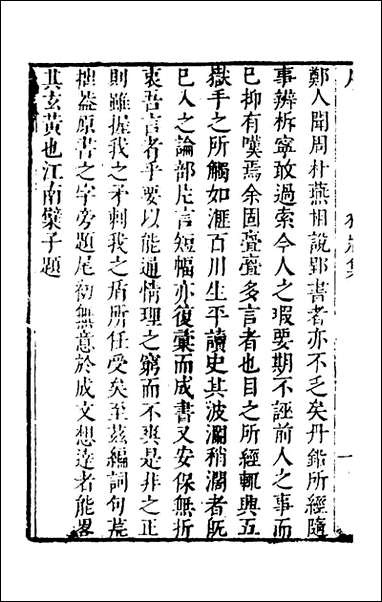 鄭人聞周朴燕相說郢書者亦不乏矣丹鉛所經隨
事辨析寧敢過索今人之瑕要期不誣前人之事而
已抑有嘆焉余固亹亹多言者也目之所經輒興五
嶽手之所觸如滙百川生平讀史其波瀾稍濶者旣
已人之論部片言短幅亦復彙而成書又安保無折
衷吾言者乎要以能通情理之窮而不爽是非之正
則雖握我之矛刺我之盾所任受矣至茲編詞句荒
拙葢原書之字旁題尾初無意於成文想達者能畧
其玄黃也江南檗子題